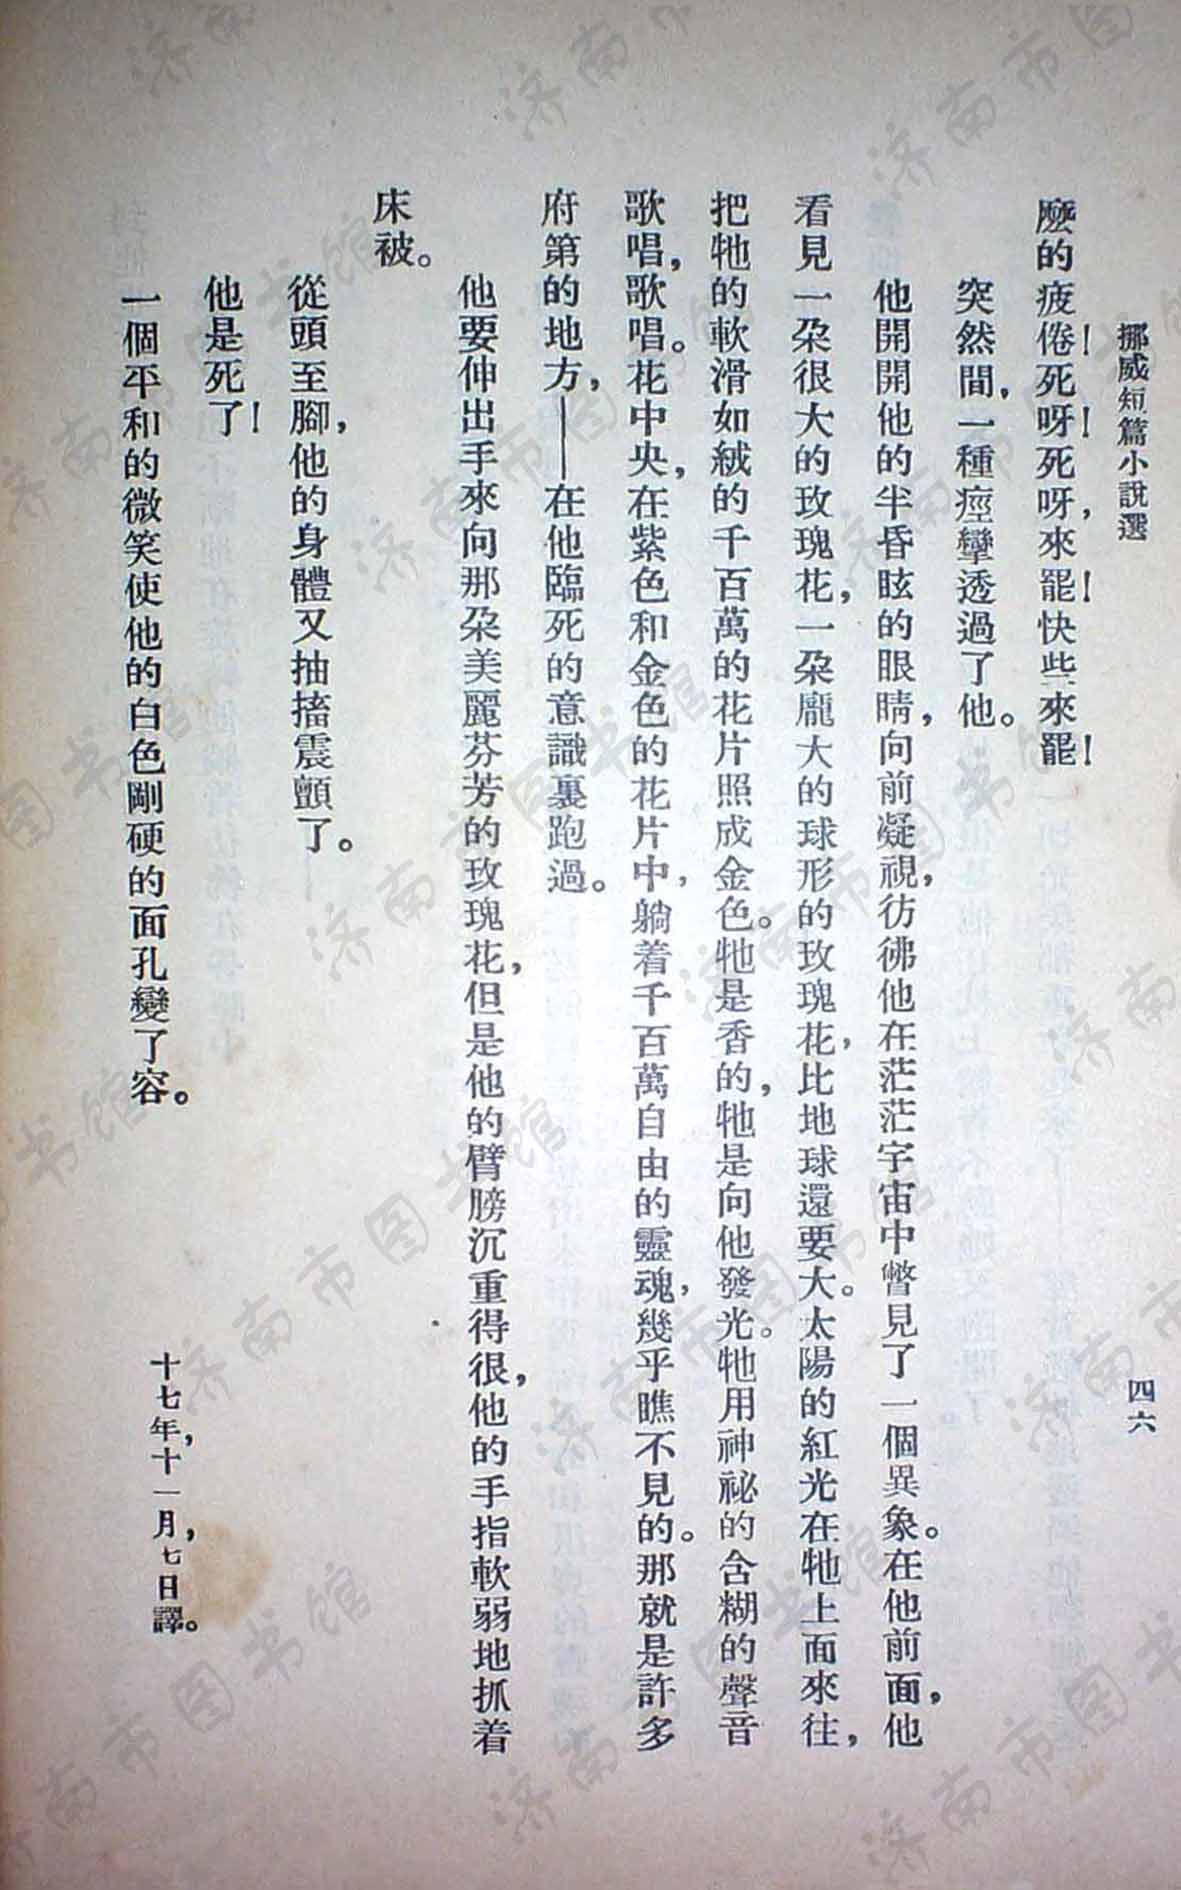 挪威短篇小說選
四六
麽的疲倦！死呀！死呀，來罷！快些來罷！
突然間，一種痙攣透過了他。
他開開他的半昏眩的眼睛，向前凝視，彷彿他在茫茫宇宙中瞥見了一個異象。在他前面，他
看見一朵很大的玫瑰花，一朵龐大的球形的玫瑰花，比地球還要大。太陽的紅光在牠上面來往，
把牠的軟滑如絨的千百萬的花片照成金色。牠是香的，牠是向他發光。牠用神祕的含糊的聲音
歌唱，歌唱。花中央，在紫色和金色的花片中，躺着千百萬自由的靈魂，幾乎瞧不見的。那就是許多
府第的地方，——在他臨死的意識裏跑過。
他要伸出手來向那朵美麗芬芳的玫瑰花，但是他的臂膀沉重得很，他的手指軟弱地抓着
床被。
從頭至腳，他的身體又抽搐震顫了。
他是死了！
一個平和的微笑使他的白色剛硬的面孔變了容。
十七年，十一月，七日譯。
济南市图书馆